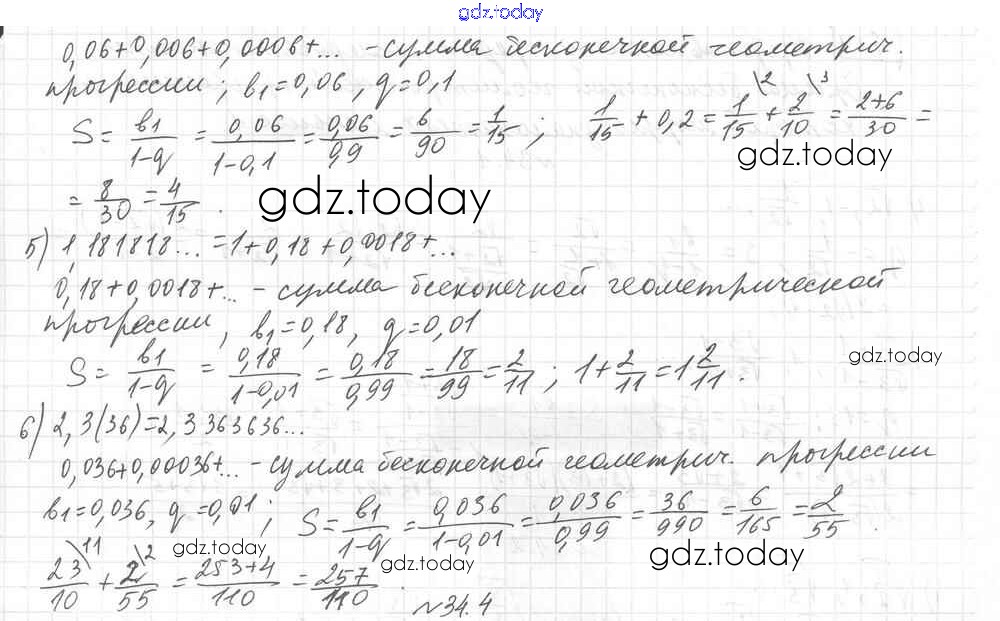 gdz.today
0,06+0,006+0,0006+... -сумма бесконечной геометрич.
прогрессии; b₁=0,06, q=0,1
S= b₁/1-q = 0,06/1-0,1 = 0,06/0,9 = 6/90 = 1/15 ; 1/15 + 0,2 = 1/15\2 + 2/10\3 = 2+6/30 =
gdz.today
= 8/30 = 4/15 .
gdz.today
5) 1,181818... =1+0,18+0,0018+...
0,18+0,0018+... - сумма бесконечной геометрической
прогрессии, b₁=0,18, q=0,01
S= b₁/1-q = 0,18/1-0,01 = 0,18/0,99 = 18/99 = 2/11 ; 1+ 2/11 = 1 2/11 .
gdz.today
6) 2,3(36)=2,3363636...
0,036+0,00036+... -сумма бесконечной геометрич. прогрессии
b₁=0,036, q=0,01 ; S= b₁/1-q = 0,036/1-0,01 = 0,036/0,99 = 36/990 = 6/165 = 2/55
gdz.today
gdz.today
gdz.today
23/10\11 + 2/55\2 = 253+4/110 = 257/110 .
№34.4